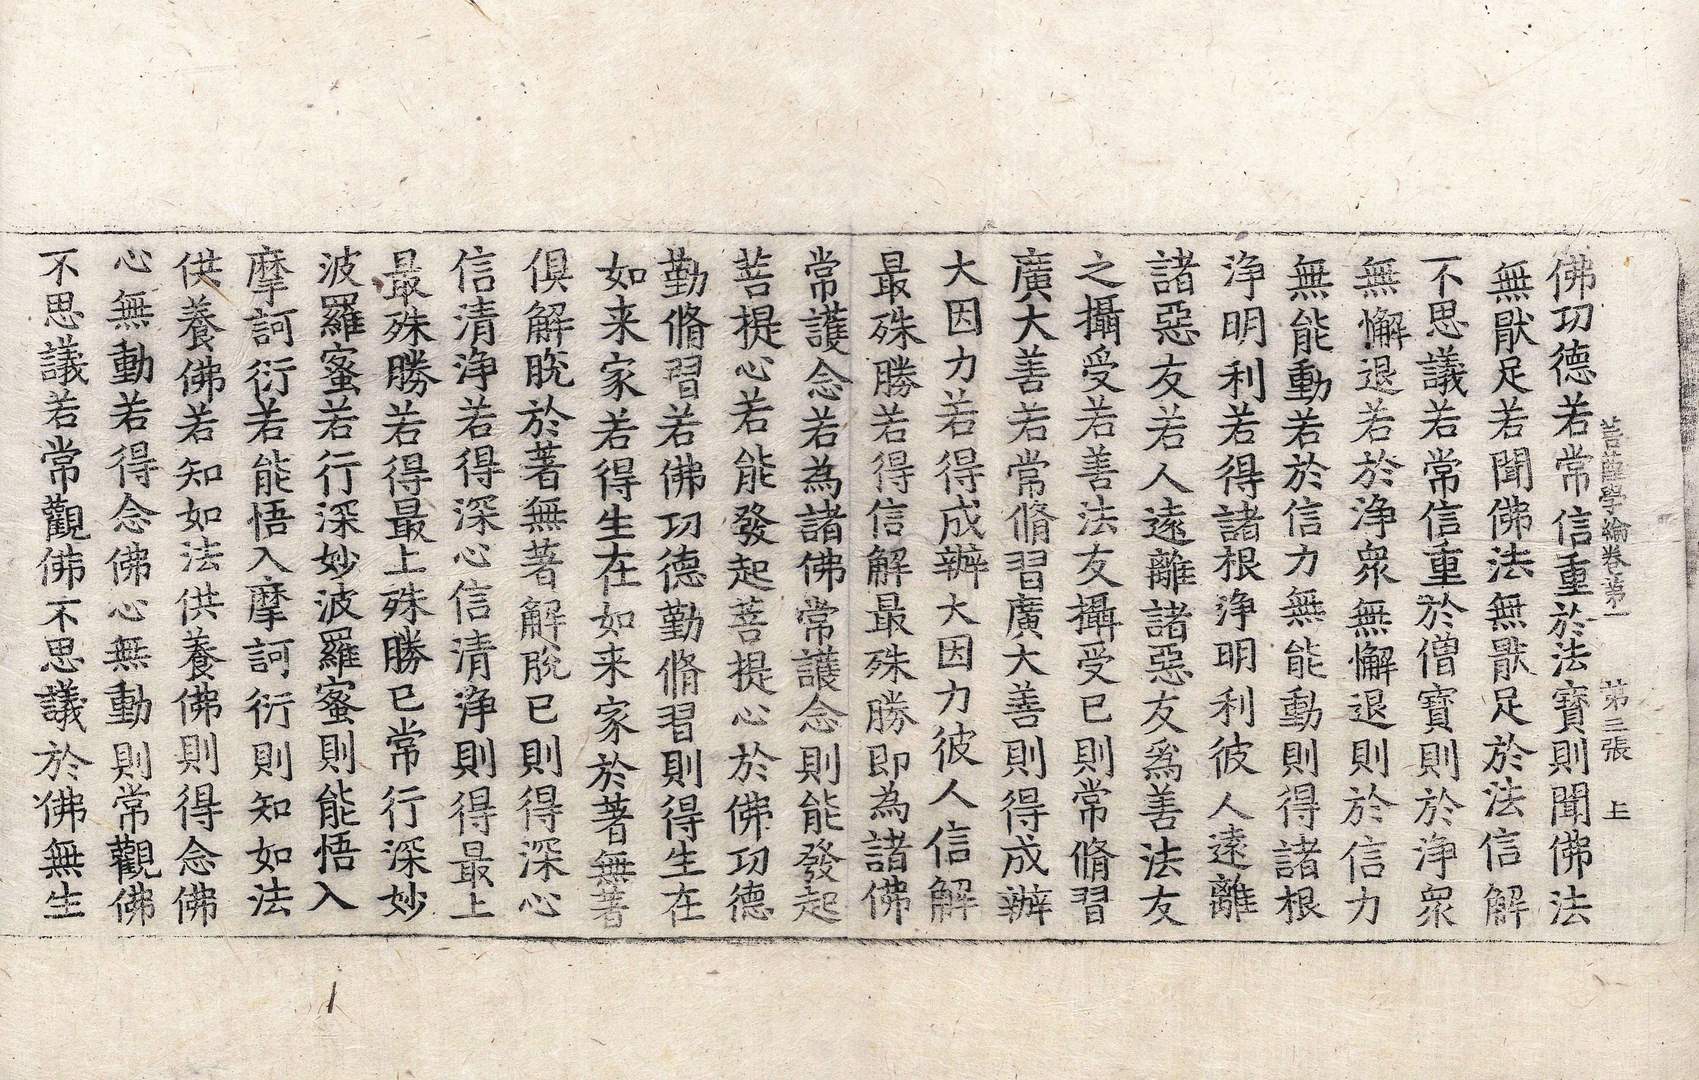 菩薩學論卷第一 第三張 上
佛功德若常信重於法寶則聞佛法
無猒足若聞佛法無猒足於法信解
不思議若常信重於僧寶則於淨衆
無懈退若於淨衆無懈退則於信力
無能動若於信力無能動則得諸根
淨明利若得諸根淨明利彼人遠離
諸惡友若人遠離諸惡友爲善法友
之攝受若善法友攝受已則常脩習
廣大善若常脩習廣大善則得成辦
大因力若得成辦大因力彼人信解
最殊勝若得信解最殊勝即為諸佛
常護念若為諸佛常護念則能發起
菩提心若能發起菩提心於佛功德
勤脩習若佛功德勤脩習則得生在
如来家若得生在如来家於著無著
俱解脫於著無著解脫已則得深心
信清淨若得深心信清淨則得最上
最殊勝若得最上殊勝已常行深妙
波羅蜜若行深妙波羅蜜則能悟入
摩訶衍若能悟入摩訶衍則知如法
供養佛若知如法供養佛則得念佛
心無動若得念佛心無動則常觀佛
不思議若常觀佛不思議於佛無生